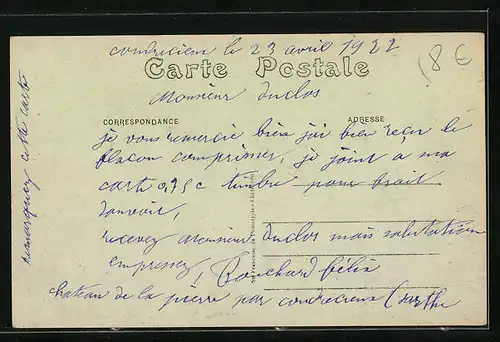 coudrecieux le 23 avril 1922
18 €
Carte Postale
Monsieur Duclos
CORRESPONDANCE
ADRESSE
je vous remercie bien j'ai bien reçu le
flacon comprimer, je joint a ma
carte 0,75 c timbre pour frait
d'anvoit,
recevez Monsieur Duclos mais salutation
empressez,
Bouchard félix
chateau de la pierre par coudrecieux Sarthe
remarquez cette carte